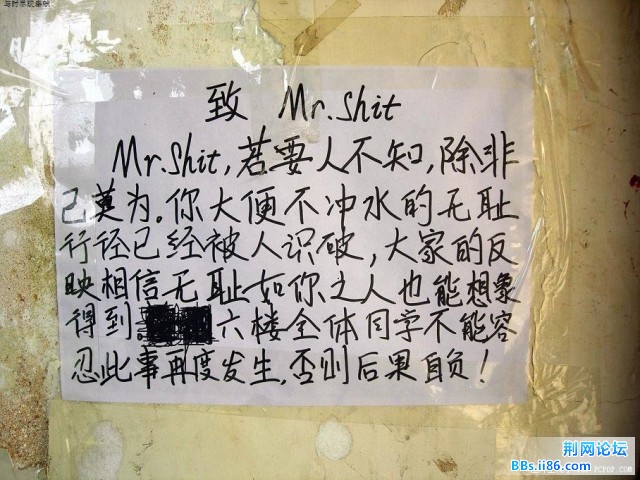 致 Mr.Shit
Mr.Shit,若要人不知,除非
己莫为。你大便不冲水的无耻
行径已经被人识破,大家的反
映相信无耻如你之人也能想象
得到. 六楼全体同学不能容
忍此事再度发生,否则后果自负!
荆网论坛
BBs.ii86.com